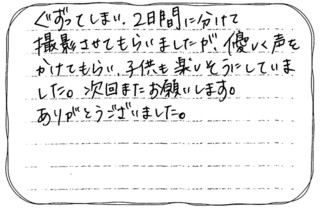 ぐずってしまい、2日間に分けて
撮影させてもらいましたが、優しく声を
かけてもらい、子供も楽しそうにしていま
した。次回またお願いします。
ありがとうございました。